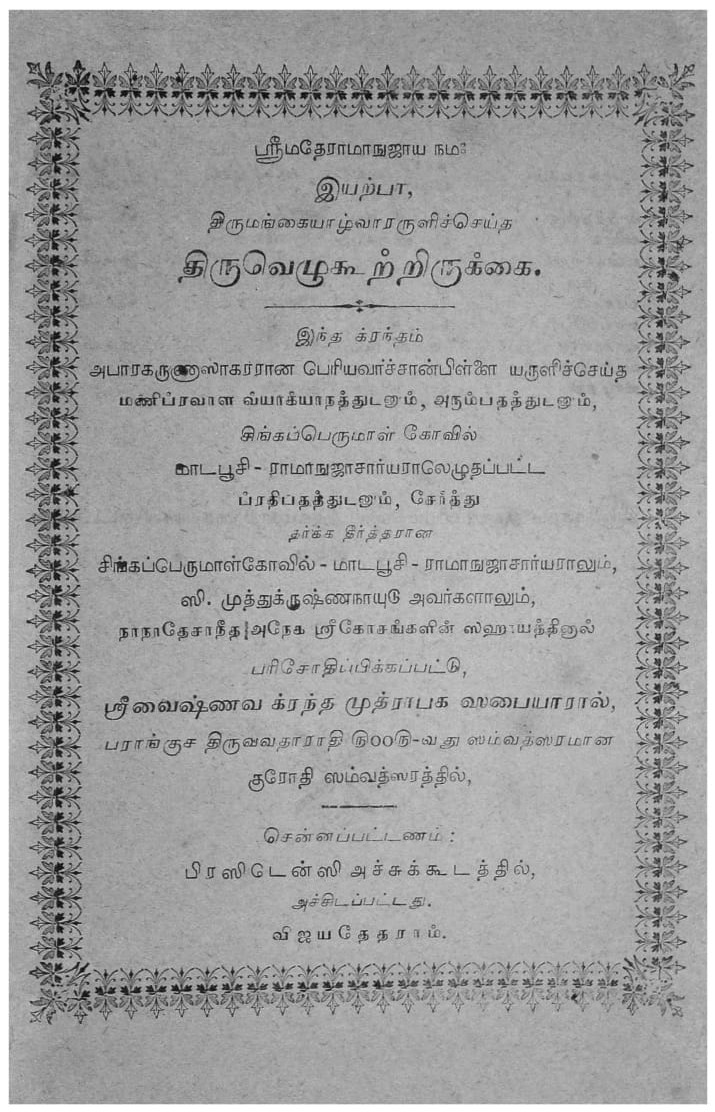 ஸ்ரீமதேராமாநுஜாய நமः
இயற்பா,
திருமங்கையாழ்வாரருளிச்செய்த
திருவெழுகூற்றிருக்கை.
இந்த க்ரந்தம்
அபாரகருணாஸாகரரான பெரியவாச்சான்பிள்ளை யருளிச்செய்த
மணிப்ரவாள வ்யாக்யாநத்துடனும், அரும்பதத்துடனும்,
சிங்கப்பெருமாள் கோவில்
மாடபூசி - ராமாநுஜாசார்யராலெழுதப்பட்ட
ப்ரதிபதத்துடனும், சேர்த்து
தர்க்க தீர்த்தரான
சிங்கப்பெருமாள்கோவில் - மாடபூசி - ராமாநுஜாசார்யராலும்,
ஸி. முத்துக்ருஷ்ணநாயுடு அவர்களாலும்,
நாநாதேசாநீத அநேக ஸ்ரீகோசங்களின் ஸஹாயத்தினால்
பரிசோதிப்பிக்கப்பட்டு,
ஸ்ரீவைஷ்ணவ க்ரந்த முத்ராபக ஸபையாரால்,
பராங்குச திருவவதாராதி ௫00௫-வது ஸம்வத்ஸரமான
குரோதி ஸம்வத்ஸரத்தில்,
சென்னப்பட்டணம் :
பிரஸிடென்ஸி அச்சுக்கூடத்தில்,
அச்சிடப்பட்டது.
விஜயதேதராம்.